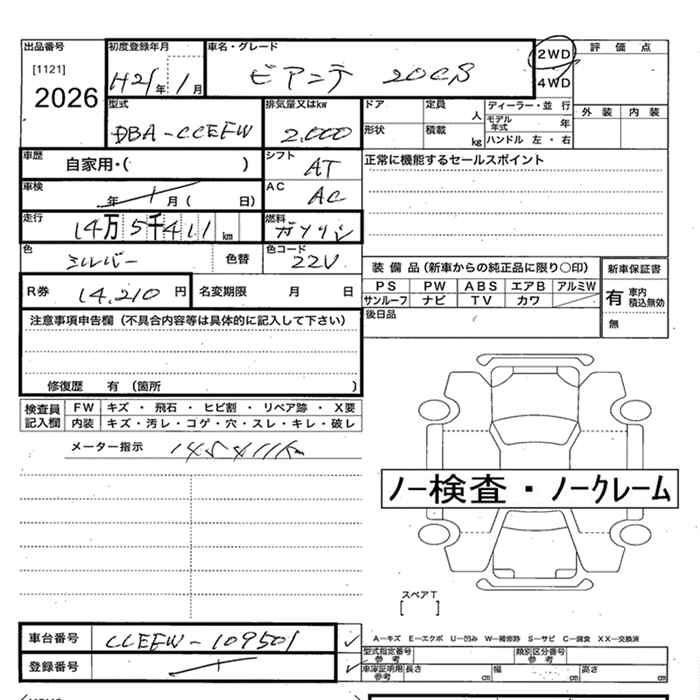 出品番号 初度登録年月 車名・グレード 2WD 評価点
[1121] H21年 1月 ビアンテ 20CS 4WD
2026
型式 排気量又はkw ドア 定員 人 ディーラー・並行 外装 内装
DBA-CCEFW 2.000 形状 積載 kg モデル年式 年
ハンドル 左・右
車歴 自家用・( ) シフト AT 正常に機能するセールスポイント
車検 年 月( 日) AC AC
走行 14万5千411km 燃料 ガソリン
色 シルバー 色替 色コード 22V
装備品(新車からの純正品に限り○印) 新車保証書
R券 14,210円 名変期限 月 日 PS PW ABS エアB アルミW 有 車内 積込無効
サンルーフ ナビ TV カワ
注意事項申告欄(不具合内容等は具体的に記入して下さい) 後日品 無
修復歴 有(箇所 )
検査員記入欄 FW キズ・飛石・ヒビ割・リペア跡・X要
内装 キズ・汚レ・コゲ・穴・スレ・キレ・破レ
メーター指示 145411km
ノー検査・ノークレーム
スペアT
[ ]
車台番号 CCEFW-109501 A-キズ E-エクボ U-凹み W-補修跡 S-サビ C-腐食 XX-交換済
型式指定番号 参考 類別区分番号 参考
登録番号 車庫証明用 参考 長さ cm 幅 cm 高さ cm